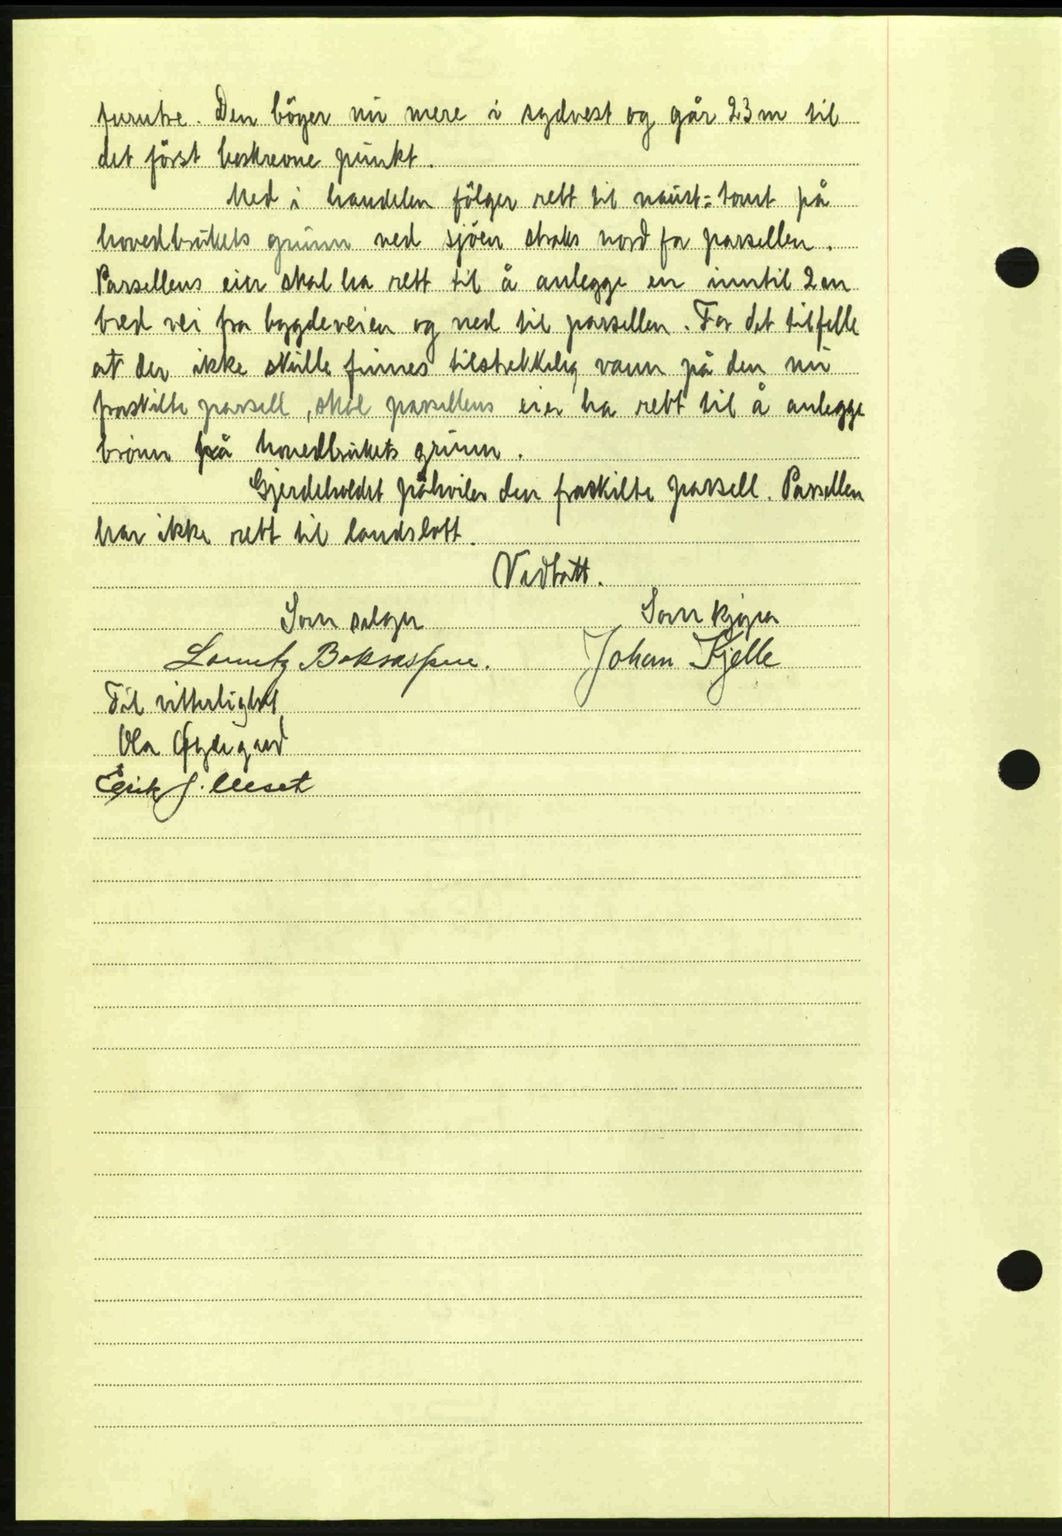 furutre. Den böyer nu mere i sydvest og går 23 m til
det först beskrevne punkt.
Med i handelen fölger rett til naust=tomt på
hovedbrukets grunn ved sjöen straks nord for parsellen.
Parsellens eier skal ha rett til å anlegge en inntil 2 m
bred vei fra bygdeveien og ned til parsellen. For det tilfelle
at der ikke skulle finnes tilstrekkelig vann på den nu
fraskilte parsell, skal parsellens eier ha rett til å anlegge
brönn på hovedbrukets grunn.
Gjerdeholdet påhviler den fraskilte parsell. Parsellen
har ikke rett til landslott.
Vedtatt.
Som selger Som kjöper
Johan Kjelle
Til vitterlighet
Ola
Erik J.